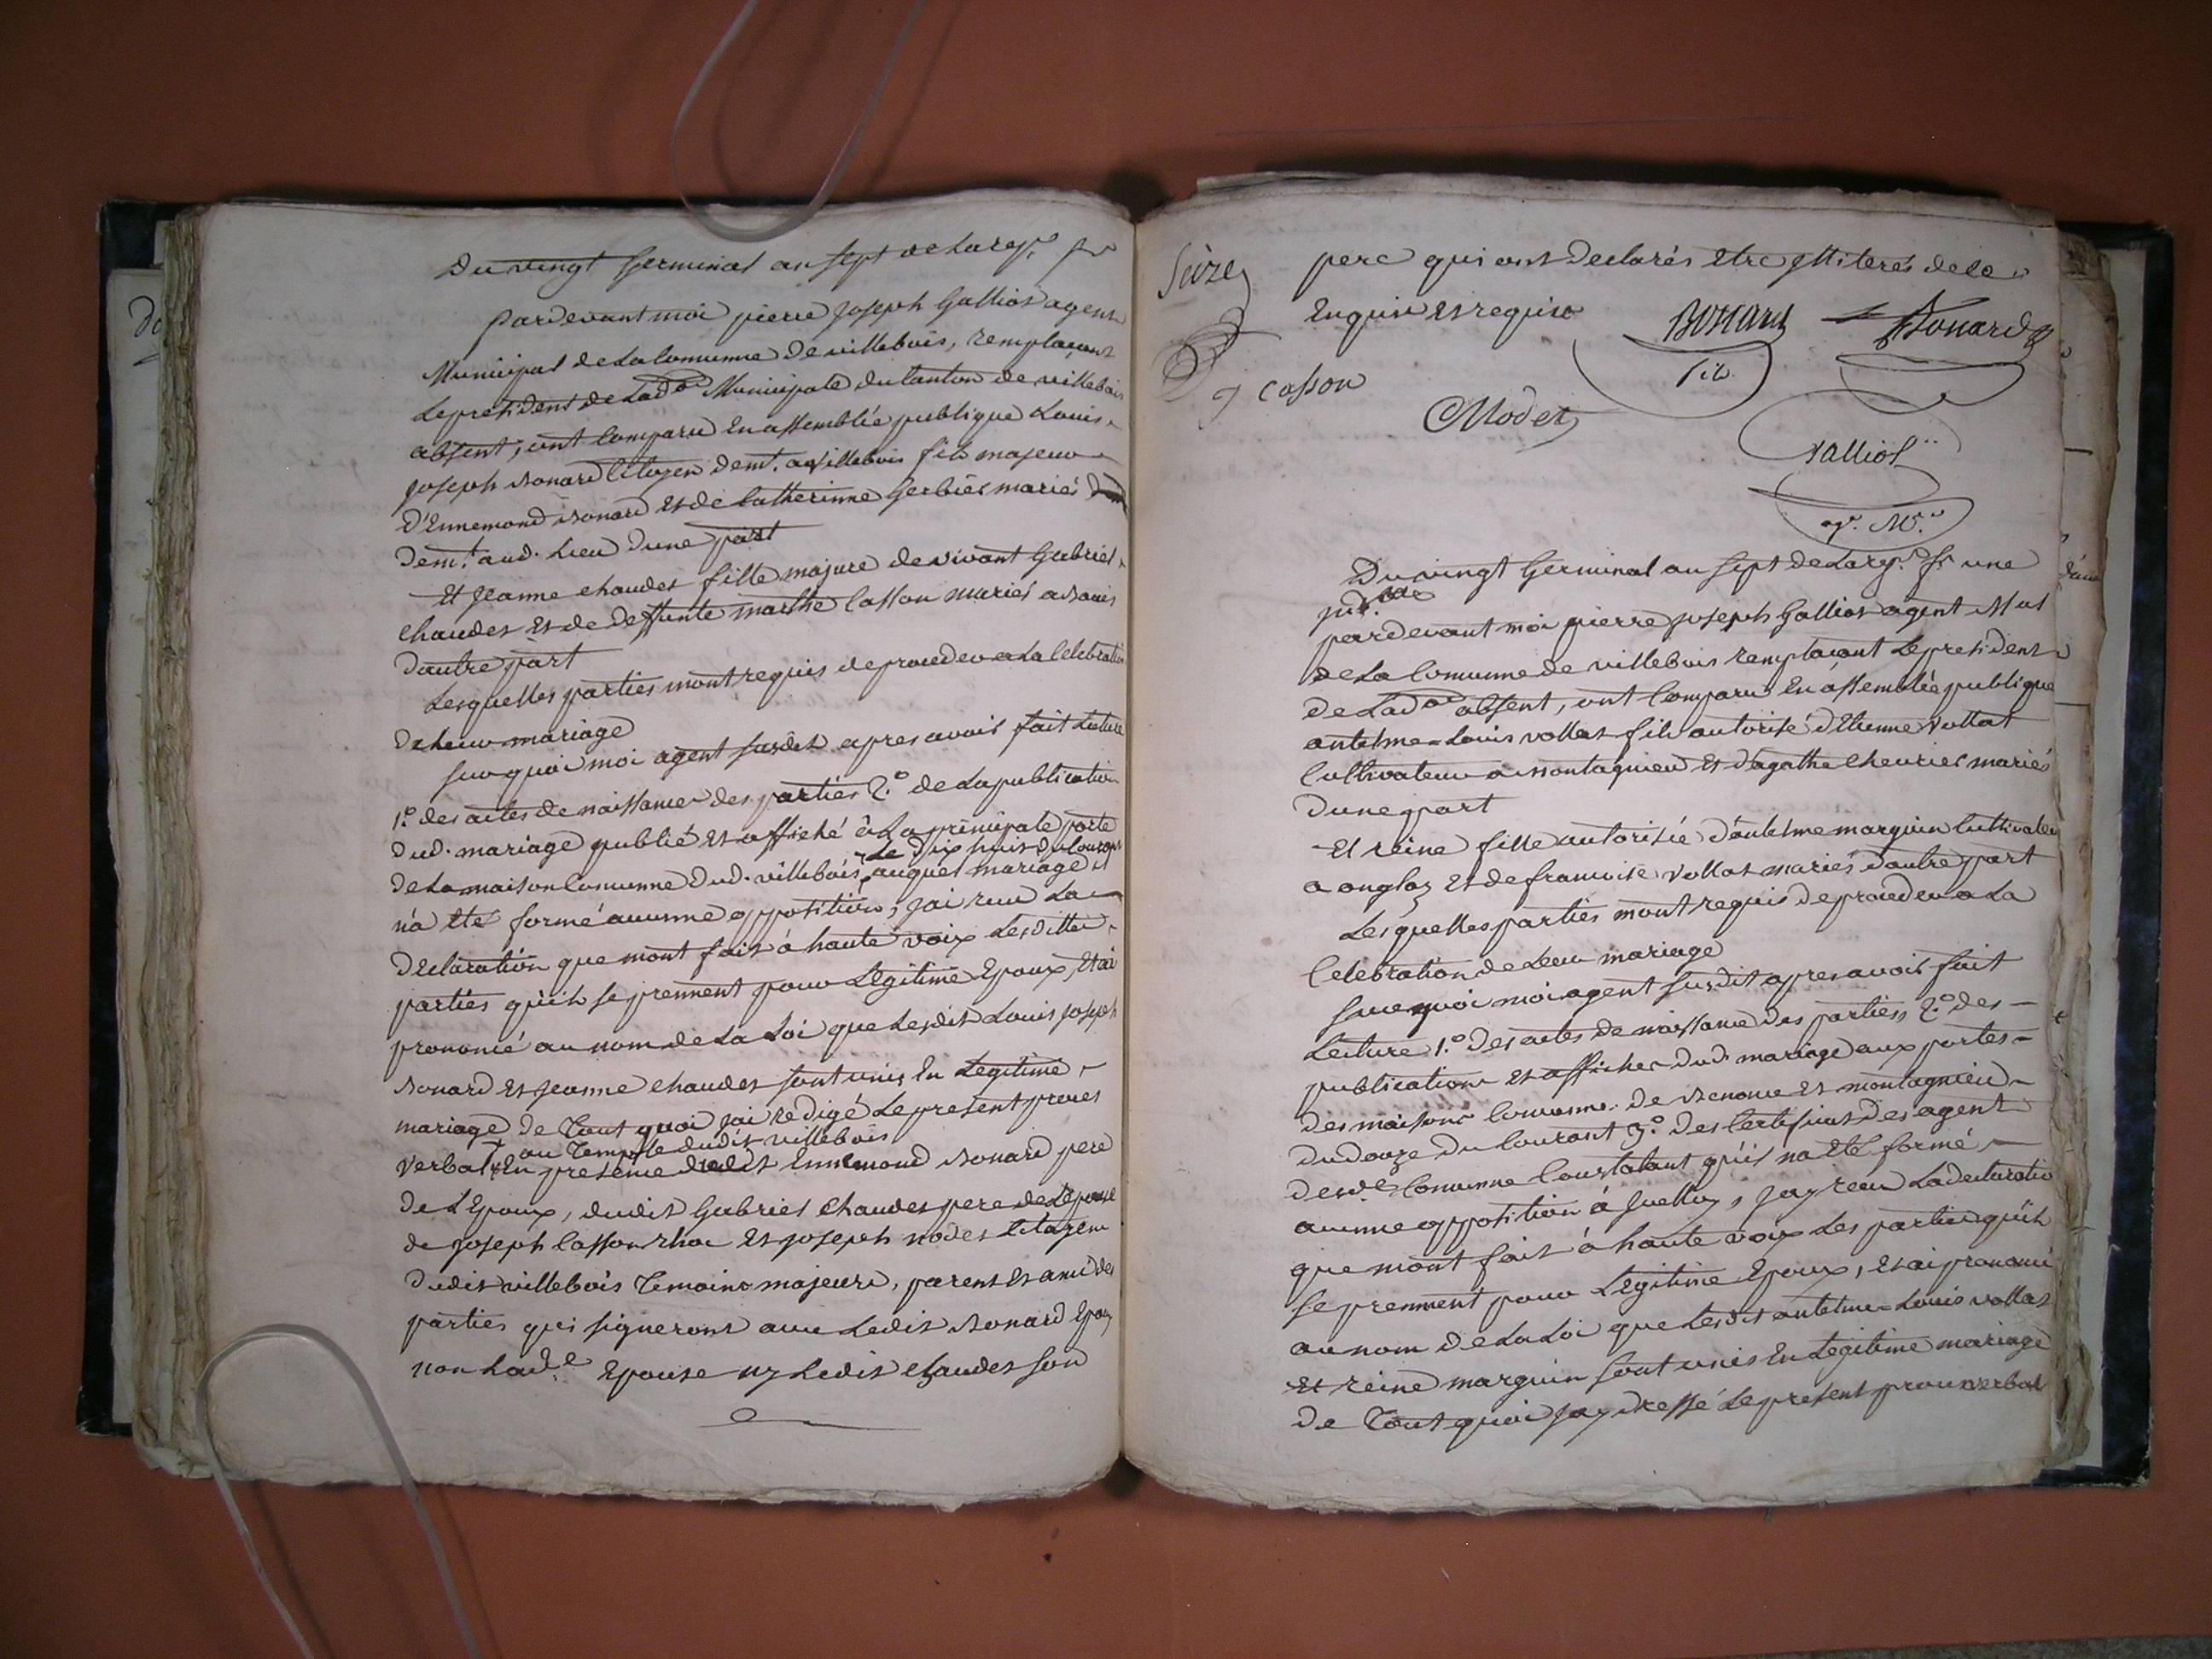 Du vingt Germinal an sept de La rep.e fr
pardevant moi pierre joseph Galliot agent
Municipal de La Commune de villebois, remplaçant
Le president de Lad.on Municipale du Canton de villebois
absent, ont Comparu En assemblée publique Louis
joseph Bonard Citoyen dem.t a villebois fils majeur
D'Ennemond Bonard Et de Catherinne Gerbier mariés
dem.t aud. Lieu Dune part
Et jeanne chaudet fille majure de vivant Gabriel
chaudet Et de deffunte marthe Casson mariés
Dautre part
Lesquelles parties mont requis de proceder a La Celebration
de Leur mariage
sur quoi moi agent susdit apres avoir fait Lecture
1.o des actes de naissance des parties 2.o de La publication
dud. mariage publié Et affiché à La principale porte
Le dix huit du Courant
de La maison Commune Dud. villebois, auquel mariage il
n'a Eté formé aucunne opposition, jai reçu La
Declaration que mont fait à haute voix Lesdittes
parties qu'ils se prennent pour Legitime Epoux, Et ai
prononcé au nom de La Loi que Lesdits Louis joseph
Bonard Et jeanne chaudet sont unis En Legitime
mariage de Tout quoi jai redigé Le present proces
au Temple dudit villebois
verbal En presence dudit Ennemond Bonard pere
de L'Epoux, dudit Gabriel Chaudet pere de L'Epouse
de joseph Casson Et joseph modet Citoyens
dudit villebois Temoins majeurs, parents Et amis des
parties qui signeront avec Ledit Bonard Epoux
non Lad.e Epouse ny Ledit chaudet son
Seize
pere qui ont declarés Etre illiterés de ce
Enquis Et requis
Bonard
Bonard
fils
J Casson
Modet
Galliot
ag. M.al
Du vingt Germinal an sept de La rep. fr. une
ind.ble
pardevant moi pierre joseph Galliot agent M al
de La Commune de villebois remplaçant Le president
de Lad.on absent, ont Comparus En assemblée publique
antelme Louis vollat fils autorisé d'Etienne vollat
Cultivateur a montagnieu Et d'agathe Cheurier mariés
Dune part
Et reine fille autorisée d'antelme marguin Cultivateur
a Et de francoise vollat mariés dautre part
Lesquelles parties mont requis de proceder a La
Celebration de Leur mariage
sur quoi moi agent susdit apres avoir fait
Lecture 1.o des actes de naissance des parties 2.o des
publications Et affiches dud. mariage aux portes
des maisons Communes de Benonce Et montagnieu
du douze du Courant 3.o des Certificats des agent
desd.e Commune Constatant qu'il na Eté formé
aucunne opposition à jcelluy, jay reçu La declaration
que mont fait à haute voix Les parties qu'ils
se prennent pour Legitime Epoux, Et ai prononcé
au nom de La Loi que Lesdits antelme Louis vollat
Et reine marguin sont unis En Legitime mariage
de Tout quoi jay dressé Le present proces verbal